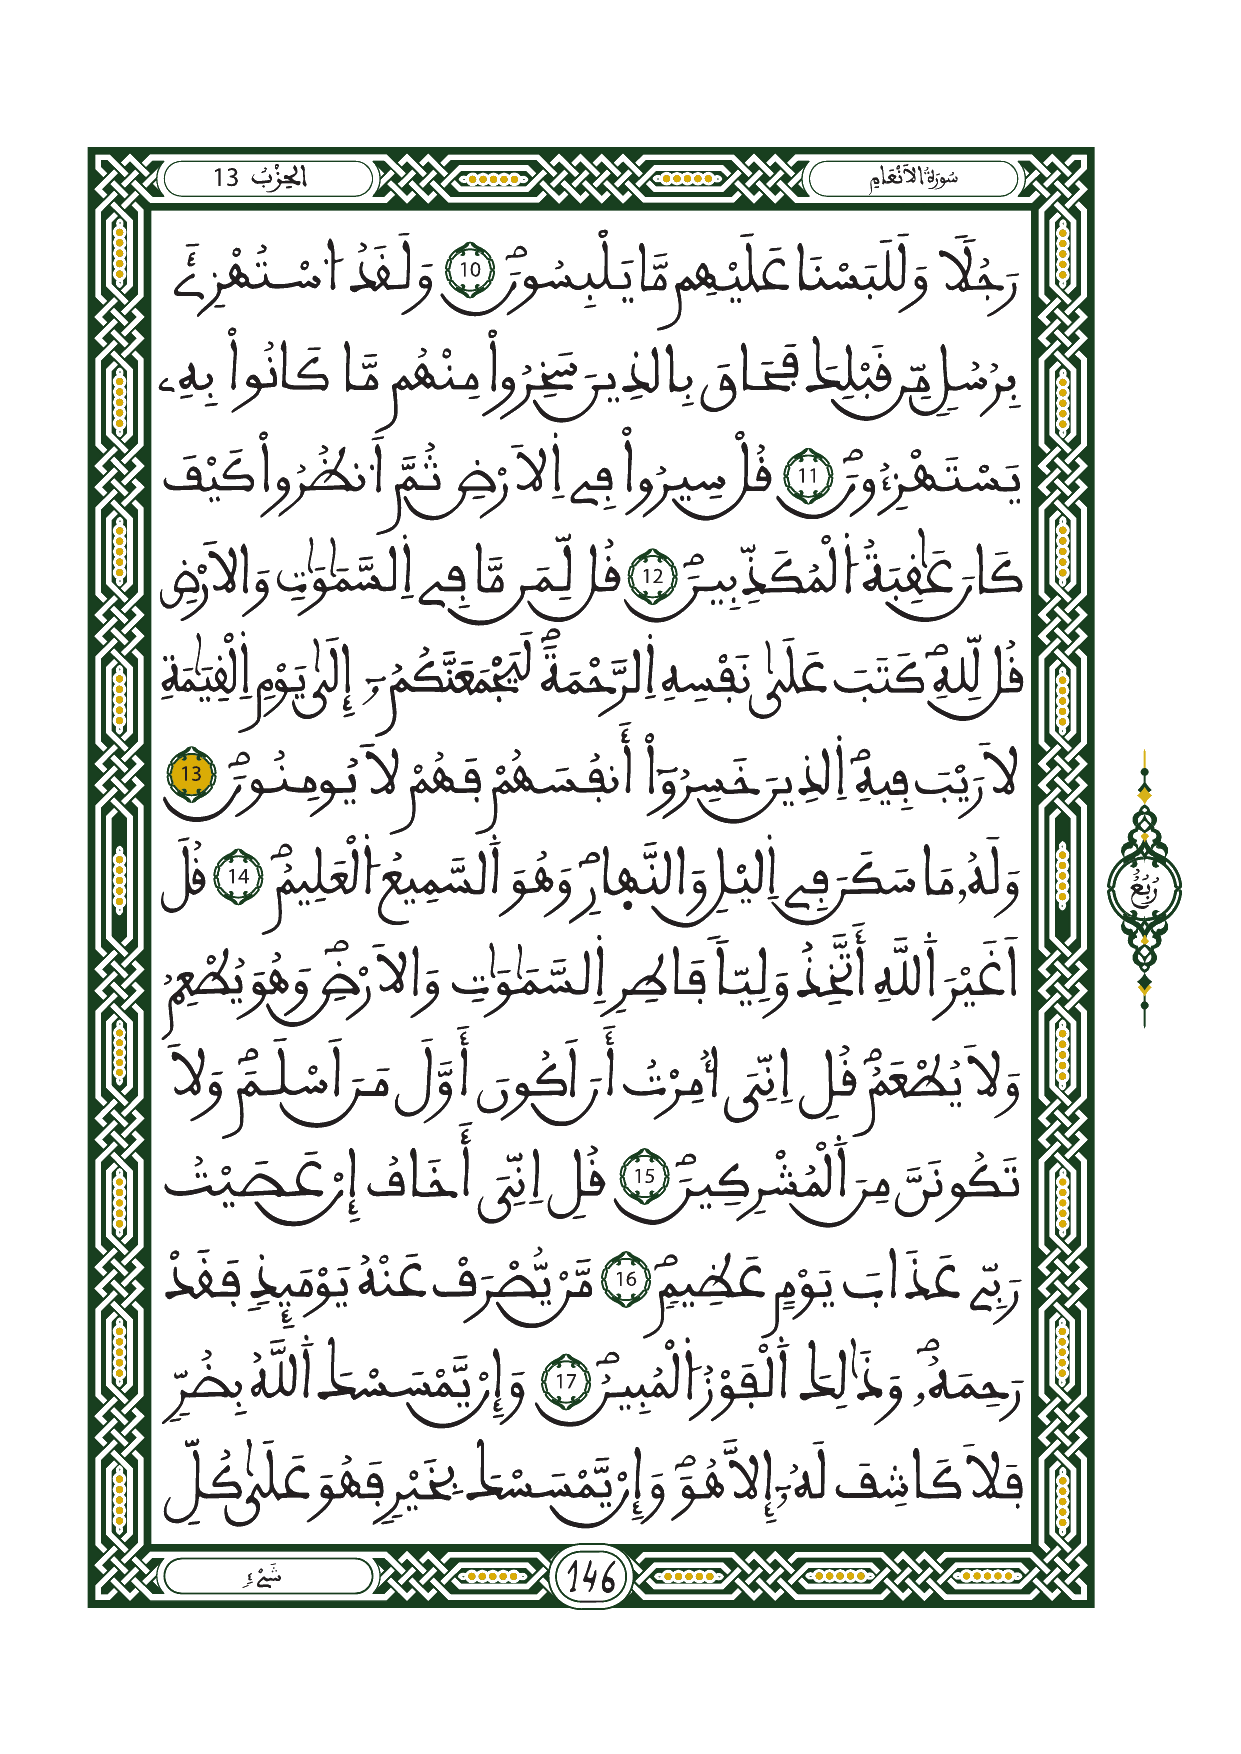 سُورَةُ الاَنْعَامِ
الحِزْبُ 13
رَجُلًا وَلَلَبَسْنَا عَلَيْهِم مَّا يَلْبِسُونَۖ 10 وَلَقَدُ اسْتُهْزِئَ
بِرُسُلٍ مِّن قَبْلِكَ فَحَاقَ بِالذِينَ سَخِرُواْ مِنْهُم مَّا كَانُواْ بِهِۦ
يَسْتَهْزِءُونَۖ 11 قُلْ سِيرُواْ فِے اِلَارْضِ ثُمَّ اَنظُرُواْ كَيْفَ
كَانَ عَٰقِبَةُ اُ۬لْمُكَذِّبِينَۖ 12 قُل لِّمَن مَّا فِے اِ۬لسَّمَٰوَٰتِ وَالَارْضِ
قُل لِّلهِۖ كَتَبَ عَلَىٰ نَفْسِهِ اِ۬لرَّحْمَةَۖ لَيَجْمَعَنَّكُمُۥٓ إِلَىٰ يَوْمِ اِ۬لْقِيَٰمَةِ
لَا رَيْبَ فِيهِۖ اِ۬لذِينَ خَسِرُوٓاْ أَنفُسَهُمْ فَهُمْ لَا يُومِنُونَۖ 13
وَلَهُۥ مَا سَكَنَ فِے اِ۬ليْلِ وَالنَّهارِۖ وَهُوَ اَ۬لسَّمِيعُ اُ۬لْعَلِيمُۖ 14 قُلَ
اَغَيْرَ اَ۬للَّهِ أَتَّخِذُ وَلِيّاٗ فَاطِرِ اِ۬لسَّمَٰوَٰتِ وَالَارْضِۖ وَهُوَ يُطْعِمُ
وَلَا يُطْعَمُۖ قُلِ اِنِّيَ أُمِرْتُ أَنَ اَكُونَ أَوَّلَ مَنَ اَسْلَمَۖ وَلَا
تَكُونَنَّ مِنَ اَ۬لْمُشْرِكِينَۖ 15 قُلِ اِنِّيَ أَخَافُ إِنْ عَصَيْتُ
رَبِّے عَذَابَ يَوْمٍ عَظِيمٖۖ 16 مَّنْ يُّصْرَفْ عَنْهُ يَوْمَئِذٖ فَقَدْ
رَحِمَهُۥۖ وَذَٰلِكَ اَ۬لْفَوْزُ اُ۬لْمُبِينُۖ 17 وَإِنْ يَّمْسَسْكَ اَ۬للَّهُ بِضُرّٖ
فَلَا كَاشِفَ لَهُۥٓ إِلَّا هُوَۖ وَإِنْ يَّمْسَسْكَ بِخَيْرٖ فَهُوَ عَلَىٰ كُلِّ
رُبُعُ
شَےْءٖ
146